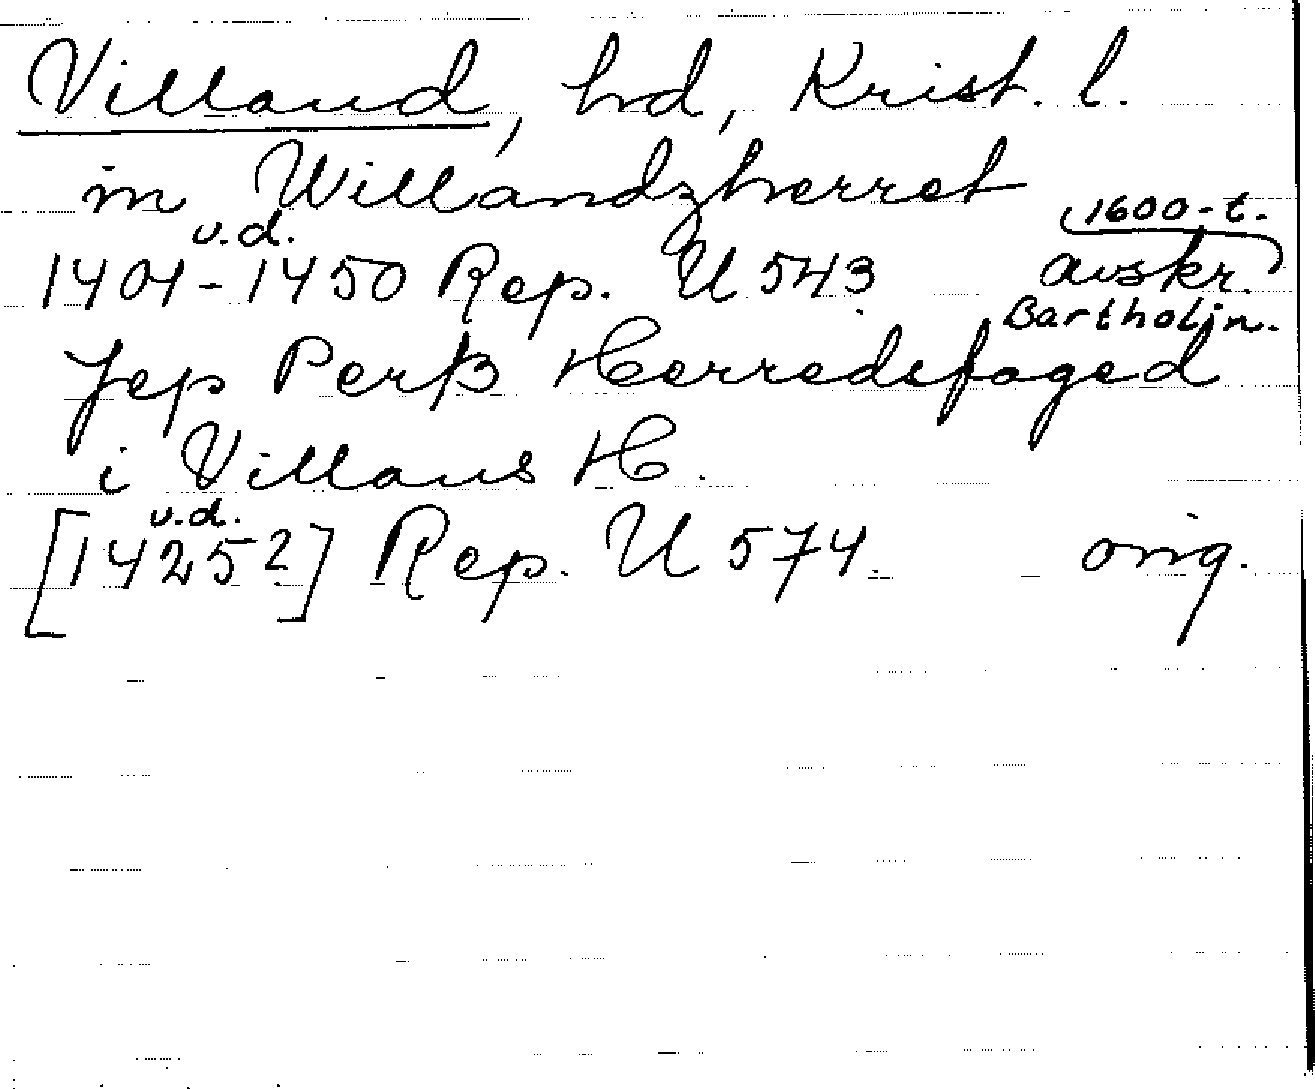 Villand, hd, Krist. l.
in Willandzherret
u.d. 1600-t.
1401-1450 Rep. U 543 avskr.
Bartholin.
Jep Perß Herredsfoged
i Villans H.
u.d.
[1425?] Rep. U 574. orig.